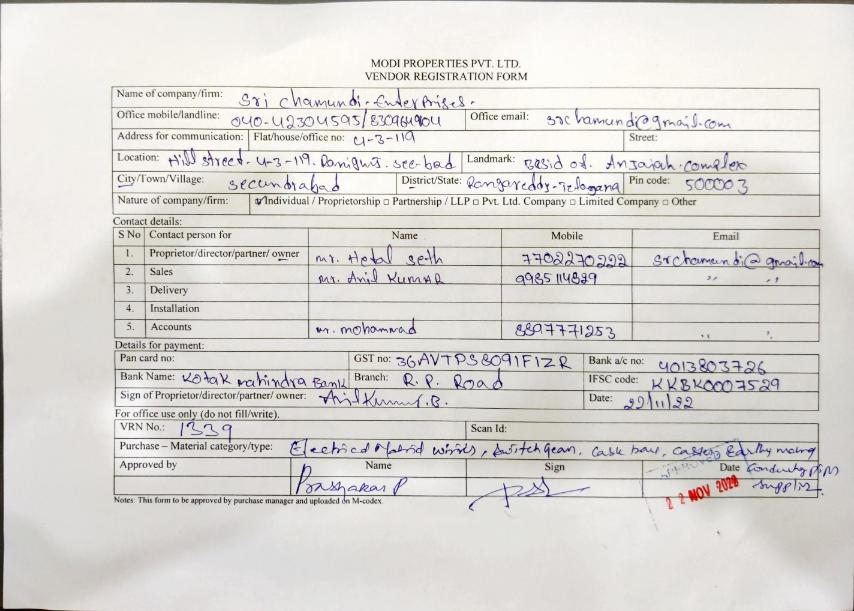 MODI PROPERTIES PVT. LTD.
VENDOR REGISTRATION FORM
Name of company/firm: Sri Chamundi Enterprises.
Office mobile/landline: 040-42304595/8309649904 Office email: srchamundi@gmail.com
Address for communication: Flat/house/office no: 4-3-119 Street:
Location: Hill street. 4-3-119. Ranigunj. sec-bad Landmark: Bsid of. Anjaiah. complex
City/Town/Village: secundrabad District/State: Rangareddy-Telagana Pin code: 500003
Nature of company/firm: ☑Individual / Proprietorship □ Partnership / LLP □ Pvt. Ltd. Company □ Limited Company □ Other
Contact details:
S No Contact person for Name Mobile Email
1. Proprietor/director/partner/ owner mr. Hetal Seth 7702270222 srchamundi@gmail.com
2. Sales mr. Anil KUMAR 9985114829 " "
3. Delivery
4. Installation
5. Accounts mr. mohammad 8897771253 " "
Details for payment:
Pan card no: GST no: 36AVTPS8091F1ZR Bank a/c no: 4013803726
Bank Name: Kotak mahindra Bank Branch: R.P. Road IFSC code: KKBK0007529
Sign of Proprietor/director/partner/ owner: Anil Kumar.B. Date: 22/11/22
For office use only (do not fill/write).
VRN No.: 1339 Scan Id:
Purchase – Material category/type: Electrical wires, switch gear,
Approved by Name Sign Date
Bashakar P
APPROVED
22 NOV 2022
Notes: This form to be approved by purchase manager and uploaded on M-codex.